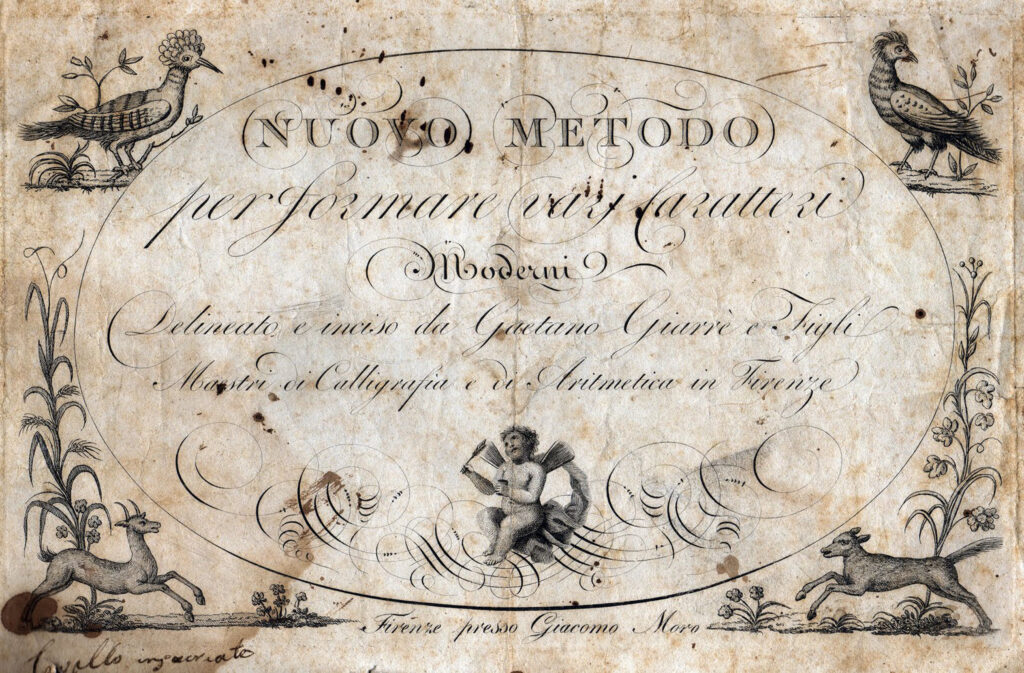 NUOVO METODO
per formare varj Caratteri
Moderni
Delineato e inciso da Gaetano Giarrè e Figli
Maestri di Calligrafia e di Aritmetica in Firenze
Firenze presso Giacomo Moro